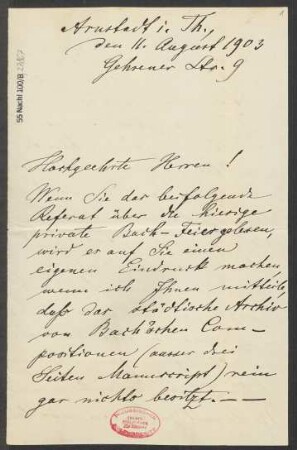 Arnstadt i. Th.,
den 11. August 1903
Gehrener Str. 9
55 Nachl 100/B
Hochgeehrte Herren!
Wenn Sie das beifolgende
Referat über die hiesige
private Bach-Feier gelesen,
wird es auf Sie einen
eigenen Eindruck machen,
wenn ich Ihnen mitteile,
daß das städtische Archiv
von Bach'schen Com-
positionen (ausser drei
Seiten Manuscript) rein
gar nichts besitzt. — —